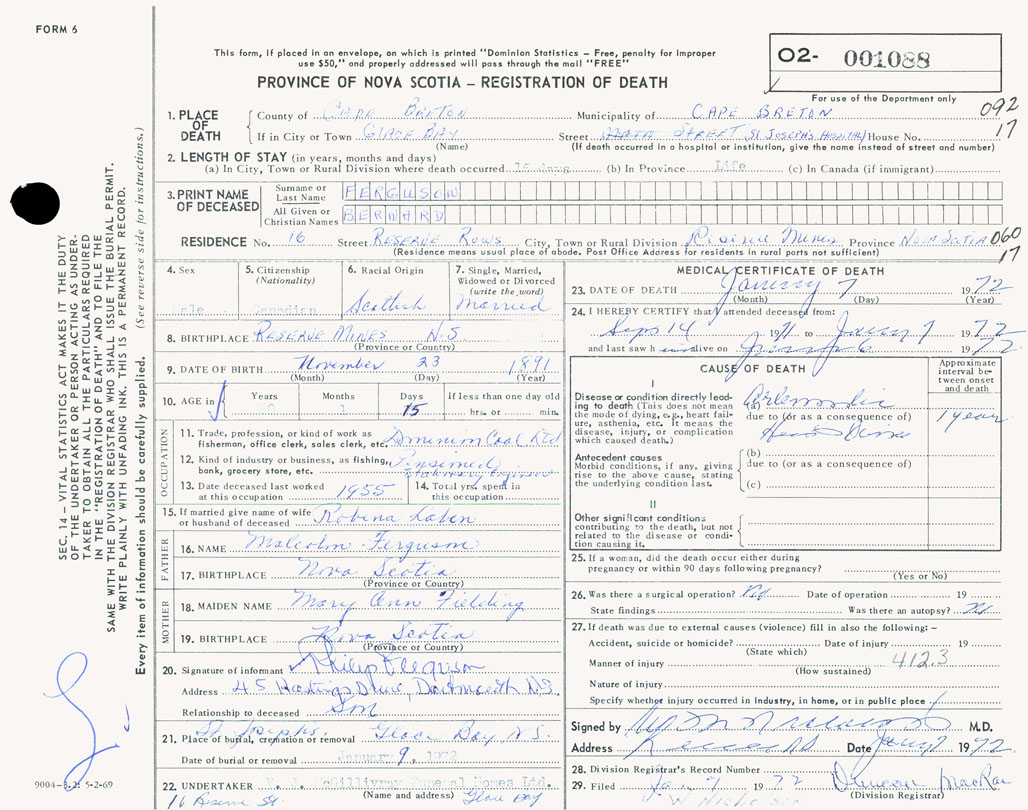 FORM 6
This form, if placed in an envelope, on which is printed "Dominion Statistics – Free, penalty for improper
use $50," and properly addressed will pass through the mail "FREE"
PROVINCE OF NOVA SCOTIA – REGISTRATION OF DEATH
02- 001088
For use of the Department only
092
17
1. PLACE OF DEATH
County of CAPE BRETON Municipality of CAPE BRETON
If in City or Town GLACE BAY Street STREET (ST JOSEPH'S HOSPITAL) House No.
(Name) (If death occurred in a hospital or institution, give the name instead of street and number)
2. LENGTH OF STAY (in years, months and days)
(a) In City, Town or Rural Division where death occurred 16 days (b) In Province Life (c) In Canada (if immigrant)
3. PRINT NAME OF DECEASED
Surname or Last Name FERGUSON
All Given or Christian Names BERNARD
RESIDENCE No. 16 Street RESERVE ROWS City, Town or Rural Division Reserve Mines Province NOVA SCOTIA 060
17
(Residence means usual place of abode. Post Office Address for residents in rural parts not sufficient)
4. Sex Male
5. Citizenship (Nationality) Canadian
6. Racial Origin Scottish
7. Single, Married, Widowed or Divorced (write the word) Married
8. BIRTHPLACE RESERVE MINES N.S.
(Province or Country)
9. DATE OF BIRTH November 23 1891
(Month) (Day) (Year)
10. AGE in Years 80 Months 1 Days 15 if less than one day old hrs. or min.
OCCUPATION
11. Trade, profession, or kind of work as fisherman, office clerk, sales clerk, etc. Dominion Coal Ltd
12. Kind of industry or business, as fishing, bank, grocery store, etc. Stationary Engineer
13. Date deceased last worked at this occupation 1955
14. Total yrs. spent in this occupation
15. If married give name of wife or husband of deceased Robena
FATHER
16. NAME Malcolm Ferguson
17. BIRTHPLACE Nova Scotia
(Province or Country)
MOTHER
18. MAIDEN NAME Mary Ann Fielding
19. BIRTHPLACE Nova Scotia
(Province or Country)
20. Signature of informant Philip Ferguson
Address 45 Hastings Drive, Dartmouth N.S.
Relationship to deceased Son
21. Place of burial, cremation or removal St Joseph's Glace Bay N.S.
Date of burial or removal January 9, 1972
22. UNDERTAKER McGillivray Funeral Homes Ltd.
(Name and address)
16 Reserve St. Glace Bay
MEDICAL CERTIFICATE OF DEATH
23. DATE OF DEATH January 7 1972
(Month) (Day) (Year)
24. I HEREBY CERTIFY that I attended deceased from:
Sept 14 1971 to January 7 1972
and last saw him alive on 1972
CAUSE OF DEATH
Approximate interval between onset and death
I
Disease or condition directly leading to death (This does not mean the mode of dying, e.g., heart failure, asthenia, etc. It means the disease, injury, or complication which caused death.)
(a)
due to (or as a consequence of) 1 year
Heart Disease
Antecedent causes
Morbid conditions, if any, giving rise to above cause, stating the underlying condition last.
(b)
due to (or as a consequence of)
(c)
II
Other significant conditions contributing to the death, but not related to the disease or condition causing it.
25. If a woman, did the death occur either during pregnancy or within 90 days following pregnancy?
(Yes or No)
26. Was there a surgical operation? No Date of operation 19
State findings Was there an autopsy? No
27. If death was due to external causes (violence) fill in also the following: –
Accident, suicide or homicide? Date of injury 19
(State which)
412.3
Manner of injury
(How sustained)
Nature of injury
Specify whether injury occurred in industry, in home, or in public place
Signed by M.D.
Address Reserve NS Date Jany 7 1972
28. Division Registrar's Record Number
29. Filed Jan 7 1972 Duncan MacRae
(Division Registrar)
W. Nicholson
SEC. 14 – VITAL STATISTICS ACT MAKES IT THE DUTY
OF THE UNDERTAKER OR PERSON ACTING AS UNDER-
TAKER TO OBTAIN ALL THE PARTICULARS REQUIRED
IN THE "REGISTRATION OF DEATH" AND TO FILE THE
SAME WITH THE DIVISION REGISTRAR WHO SHALL ISSUE THE BURIAL PERMIT.
WRITE PLAINLY WITH UNFADING INK. THIS IS A PERMANENT RECORD.
Every item of information should be carefully supplied. (See reverse side for instructions.)
9004-5.2: 5-2-69